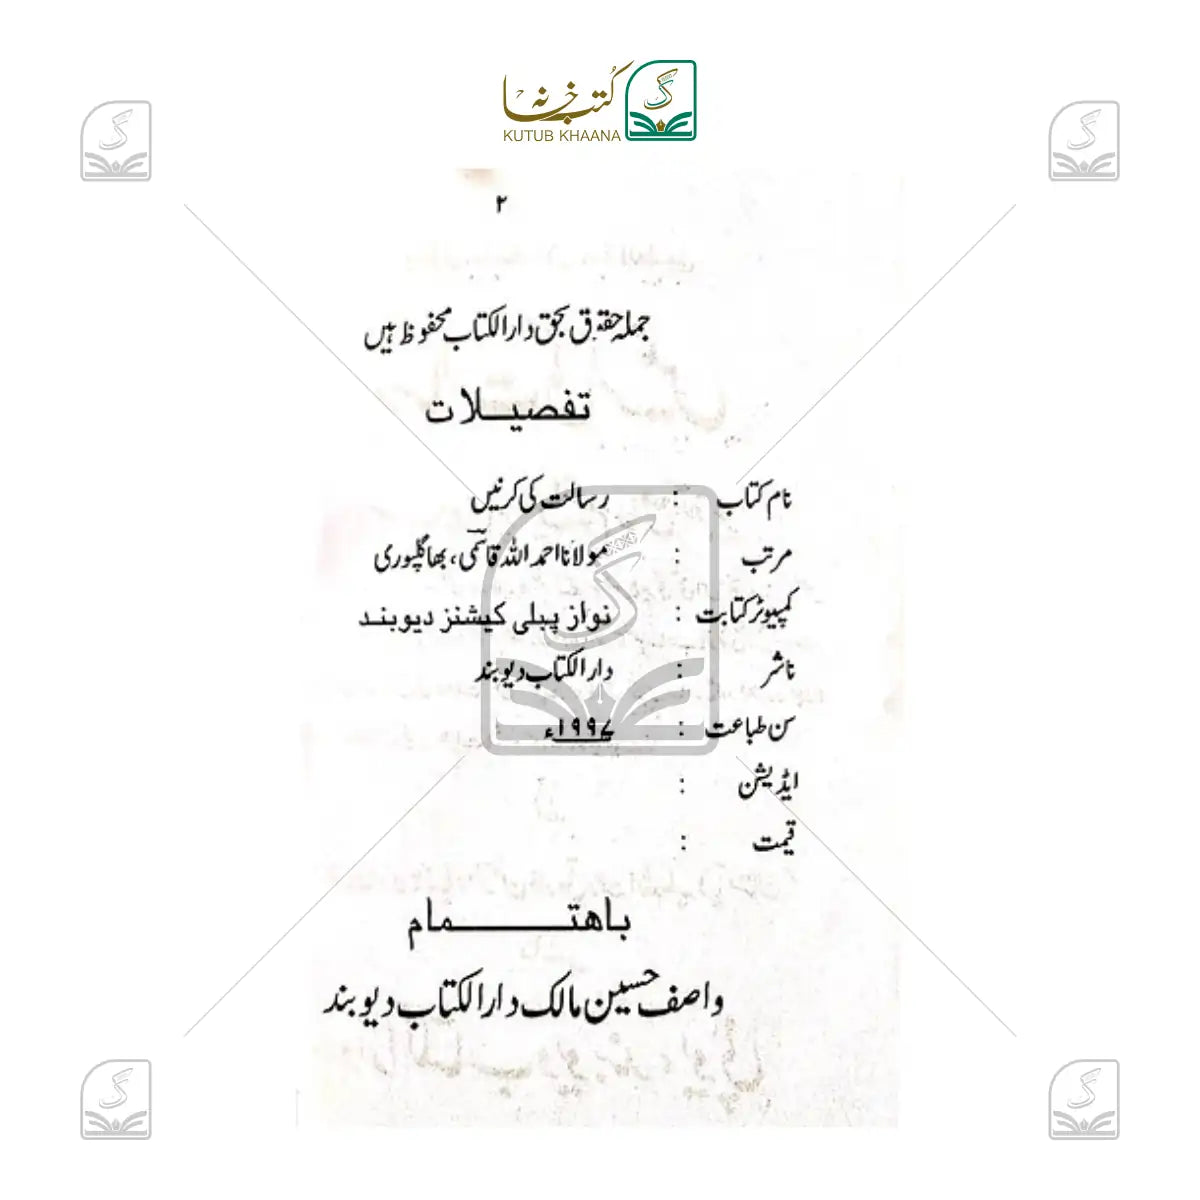 کتب خانہ
KUTUB KHAANA
۲
جملہ حقوق بحق دارالکتاب محفوظ ہیں
تفصیلات
نام کتاب : رسالت کی کرنیں
مرتب : مولانا احمد اللہ قاسمی، بھاگلپوری
کمپیوٹر کتابت : نواز پبلی کیشنز دیوبند
ناشر : دارالکتاب دیوبند
سن طباعت : ۱۹۹۷ء
ایڈیشن :
قیمت :
باھتمام
واصف حسین مالک دارالکتاب دیوبند